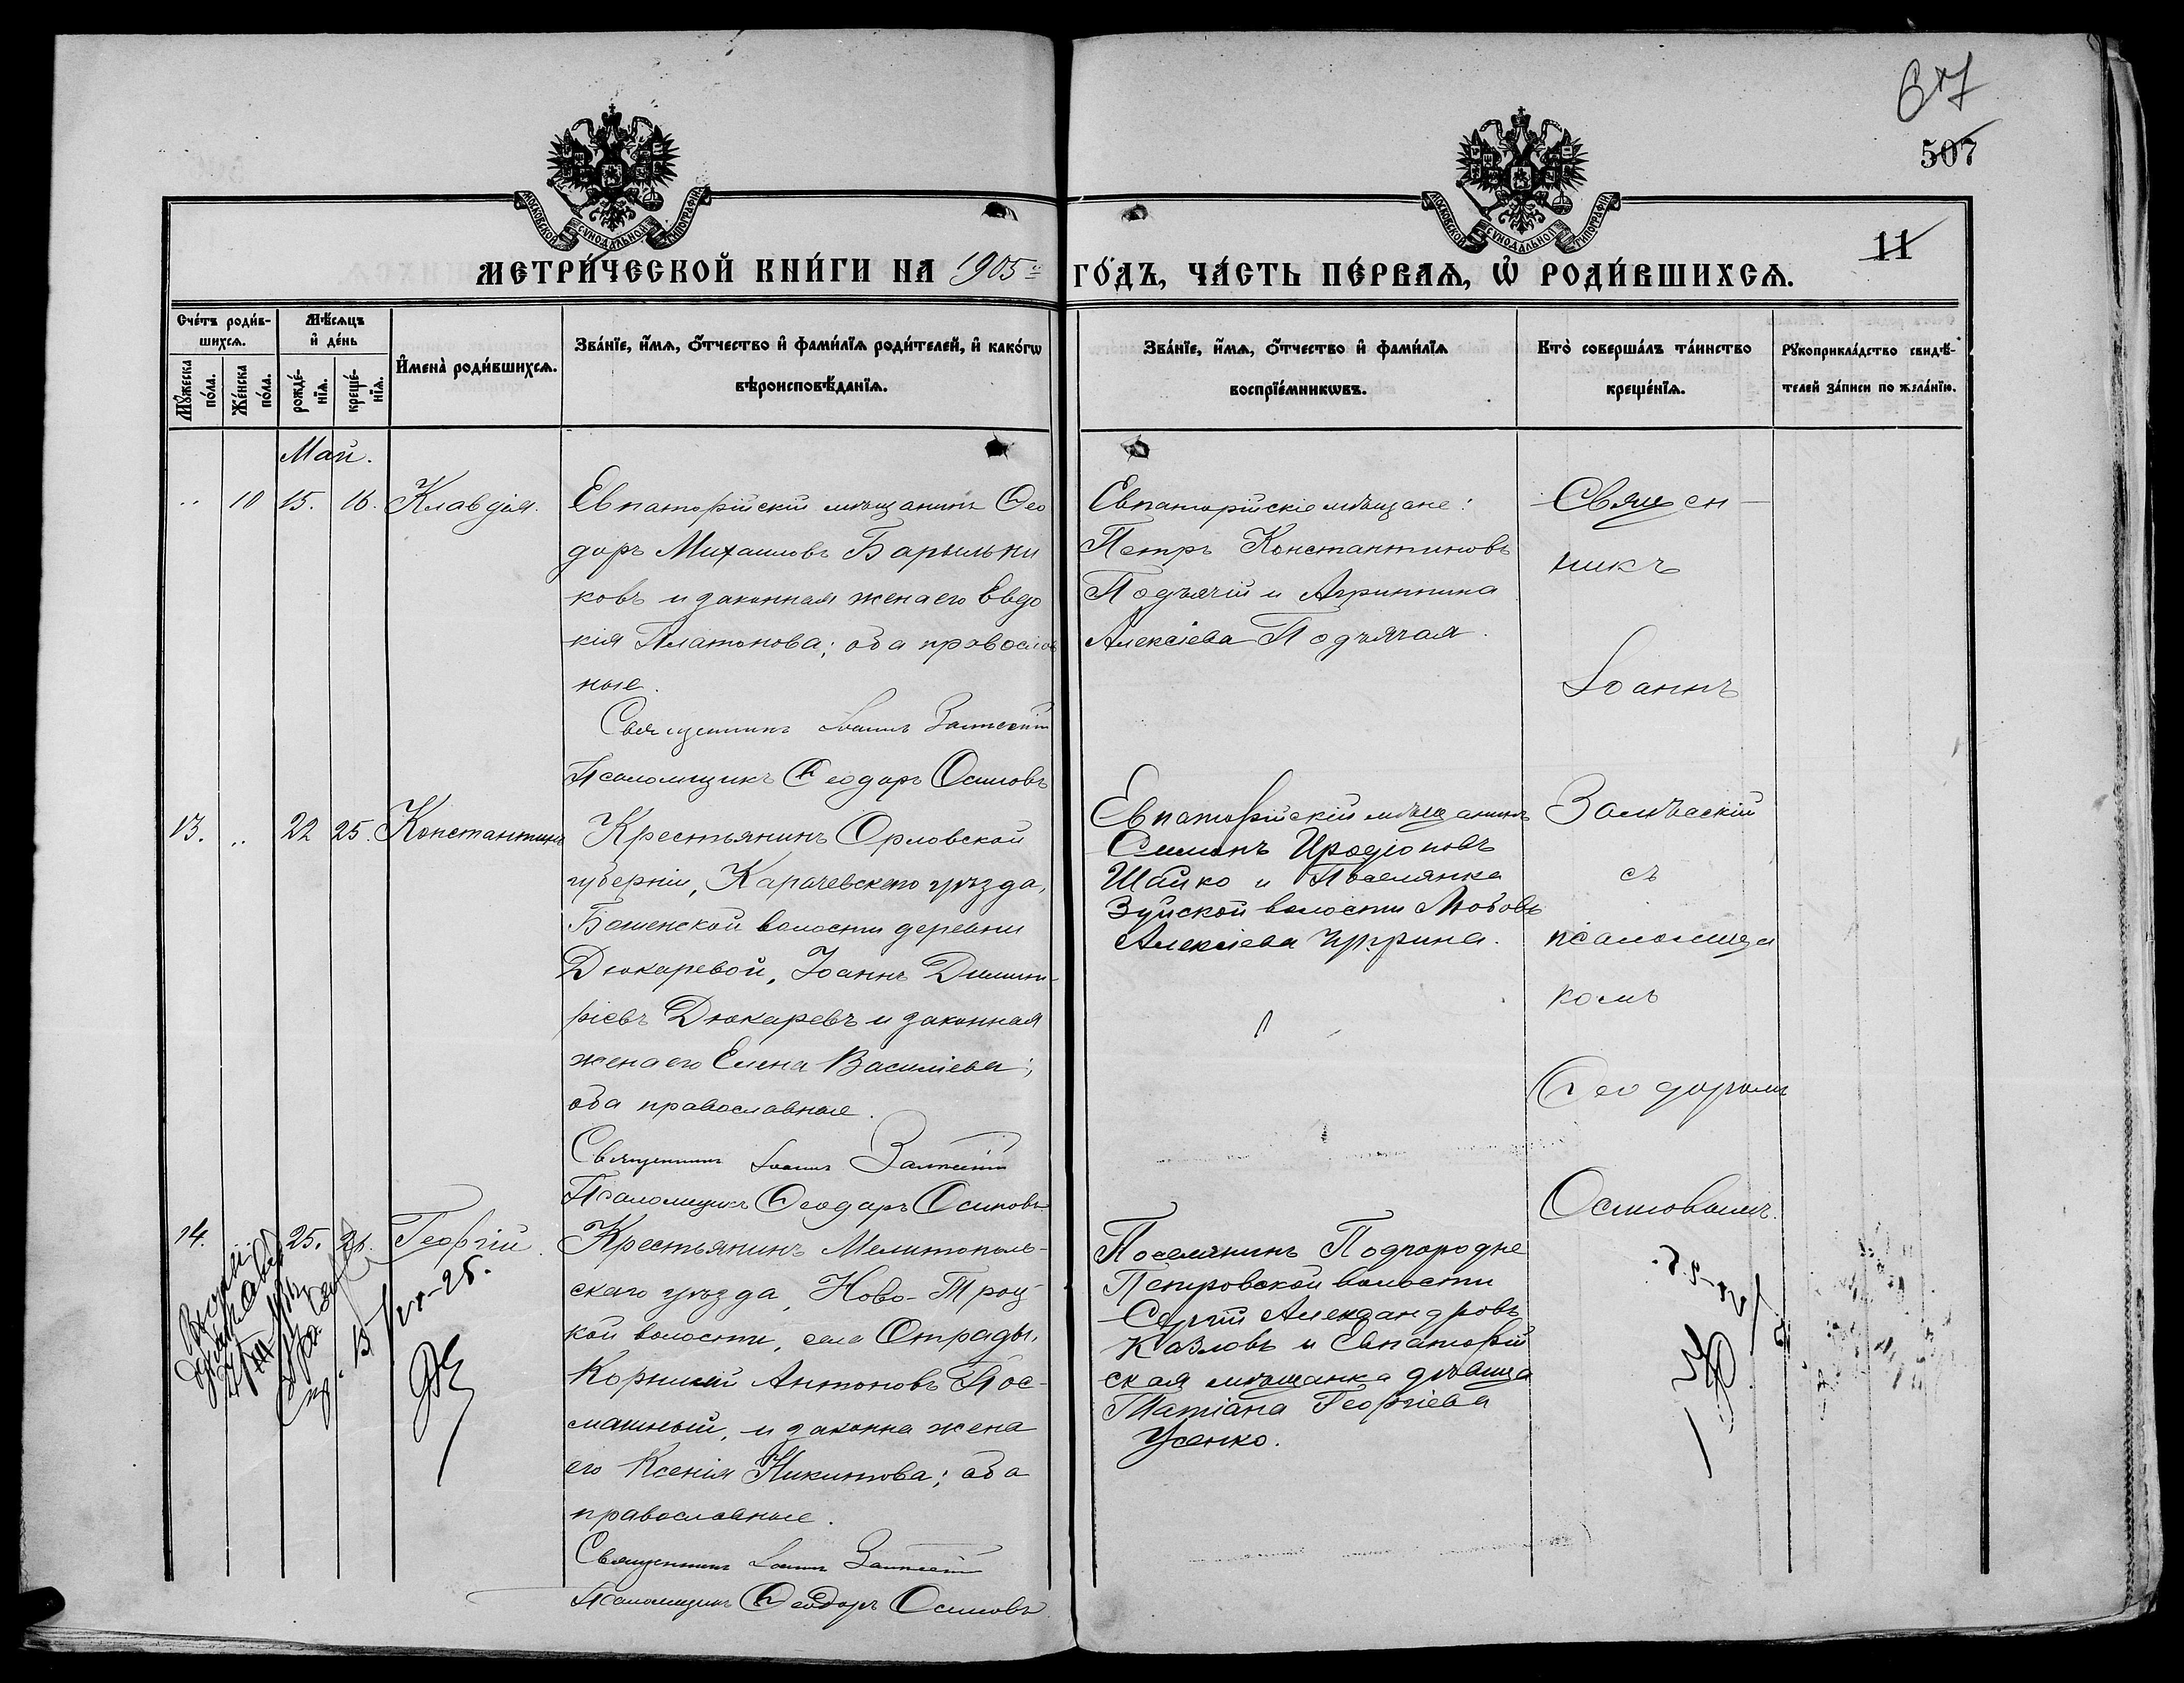 67
507
11
МОСКОВСКОЙ СѴНОДАЛЬНОЙ ТИПОГРАФІИ
МОСКОВСКОЙ СѴНОДАЛЬНОЙ ТИПОГРАФІИ
МЕТРИ́ЧЕСКОЙ КНИ́ГИ НА 1905й ГО́ДЪ, ЧА́СТЬ ПЕ́РВАЯ, Ѡ҆ РОДИ́ВШИХСЯ.
Сче́тъ роди́в-
шихся.
Мꙋ́жеска по́ла.
Же́нска по́ла.
Мѣ́сяцъ и҆ де́нь
рожде́-
нїя.
креще́-
нїя.
И҆мена̀ роди́вшихся.
Зва́нїе, и҆́мя, ѻ҆́тчество и҆ фами́лїя роди́телей, и҆ како́гѡ
вѣроисповѣ́данїя.
Зва́нїе, и҆́мя, ѻ҆́тчество и҆ фами́лїя
воспрїе́мникѡвъ.
Кто̀ соверша́лъ та́инство
креще́нїя.
Рꙋкоприкла́дство свидѣ́-
телей за́писи по жела́нїю.
Май.
" 10 15. 16. Клавдія.
Евпаторійскій мѣщанинъ Ѳео
доръ Михаиловъ Барыльни
ковъ и законная жена его Евдо
кія Платонова; оба православ
ные.
Священникъ Іоаннъ
Псаломщикъ Ѳеодоръ Осиповъ
Евпаторійскіе мѣщане:
Петръ Константиновъ
Подъячій и Агриппина
Алексіева Подъячая.
Священ-
никъ
Іоаннъ
Залѣсскій
съ
псаломщи
комъ
Ѳеодоромъ
Осиповымъ.
13. " 22 25. Константинъ
Крестьянинъ Орловской
губерніи, Карачевскаго уѣзда,
волости деревни
Дюкаревой, Іоаннъ Димит-
ріевъ Дюкаревъ и законная
жена его Елена Василіева;
оба православные.
Священникъ Іоаннъ
Псаломщикъ Ѳеодоръ Осиповъ
Евпаторійскій мѣщанинъ
Симонъ Иродіоновъ
Шайко и Поселянка
Зуйской волости Любовь
Алексіева
14. " 25. Георгій.
Крестьянинъ Мелитополь-
скаго уѣзда, Ново-Троц-
кой волости, села Отрады,
Корнилій Антоновъ Пос-
машный, и законна жена
его Ксенія Никитова; оба
православные.
Священникъ Іоаннъ
Псаломщикъ Ѳеодоръ Осиповъ
Поселянинъ Подгородне
Петровской волости
Сергій Александровъ
Козловъ и Евпаторій
ская мѣщанка дѣвица
Татіана Георгіева
Усенко.